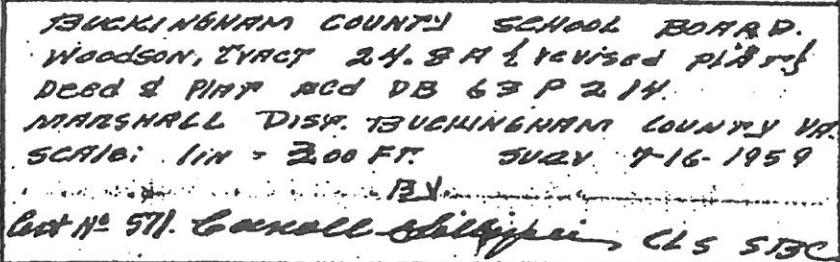 BUCKINGHAM COUNTY SCHOOL BOARD.
WOODSON, TRACT 24.8 A { revised plat }
Deed & PLAT Rcd DB 63 P 214.
MARSHALL DIST. BUCKINGHAM COUNTY VA.
SCAle: 1in = 300 FT. SURV 7-16-1959
BY
Cert No 571. Carroll CLS SBC